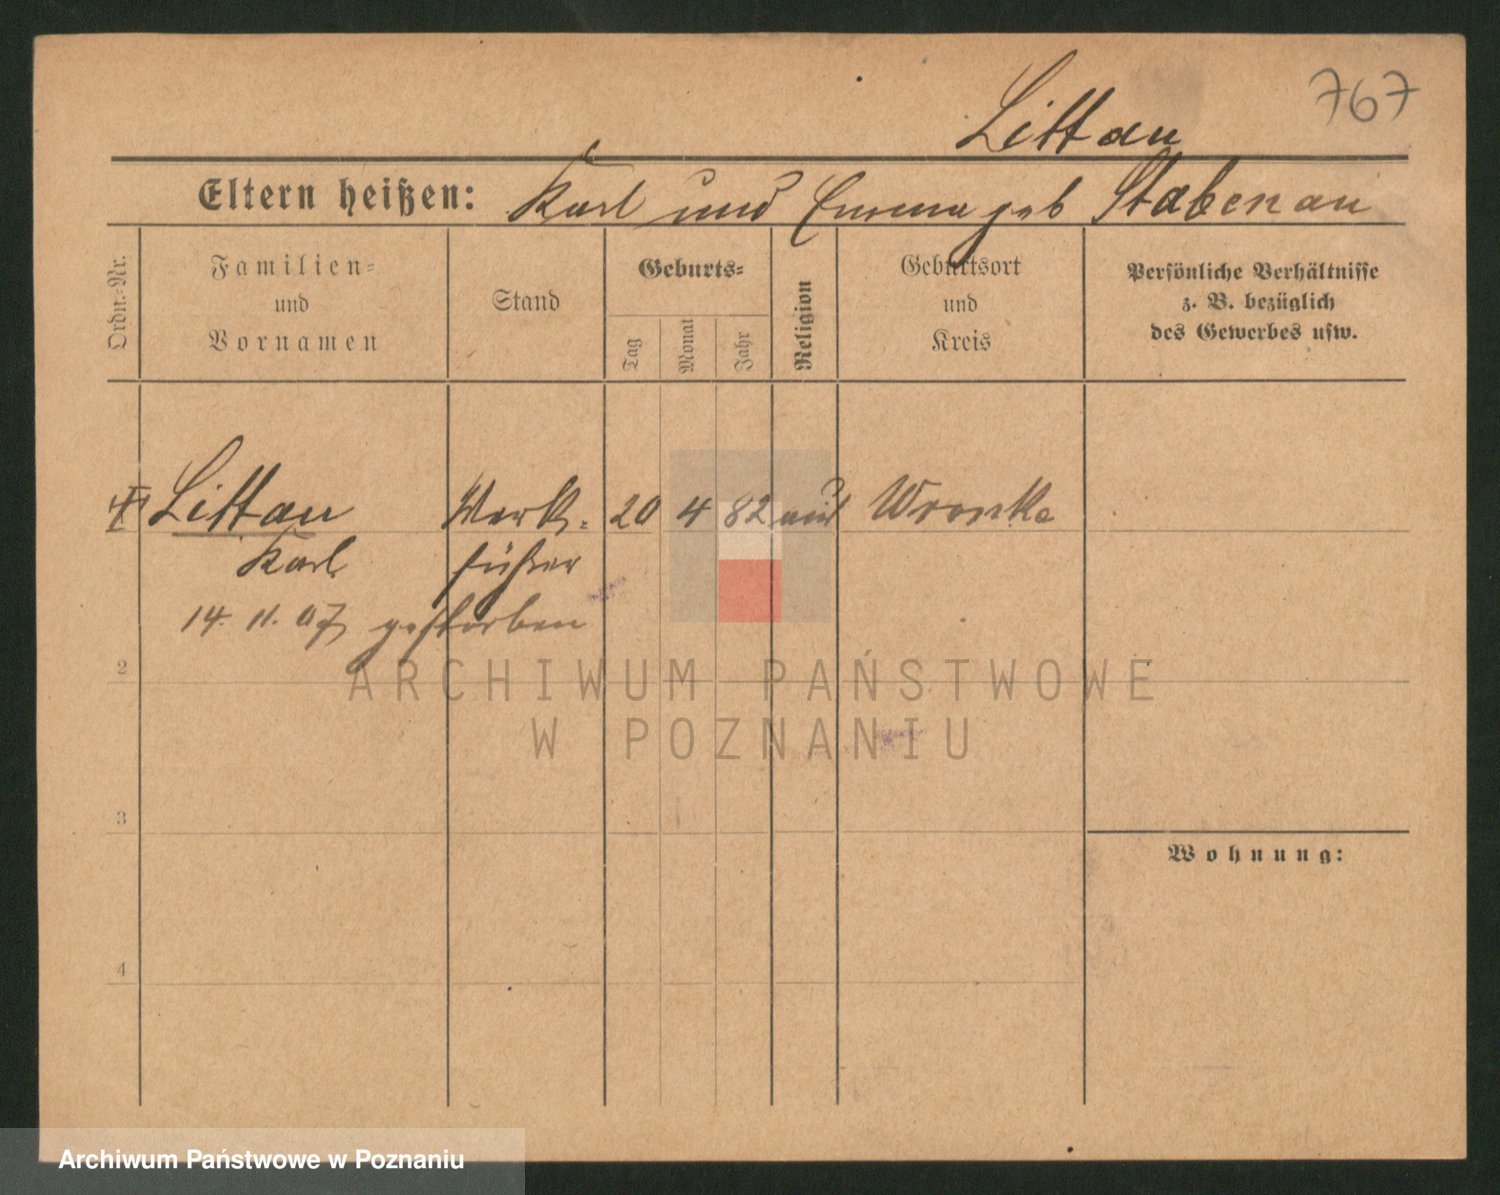 767
Littau
Eltern heißen: Karl und Emma geb Stabenau
Ordn.-Nr.
Familien-
und
Vornamen
Stand
Geburts-
Tag
Monat
Jahr
Religion
Geburtsort
und
Kreis
Persönliche Verhältnisse
z. B. bezüglich
des Gewerbes usw.
Littau Werk- 20 4 82 Wronke
Karl führer
14. 11. 07 gestorben
2
ARCHIWUM PAŃSTWOWE
W POZNANIU
3
Wohnung:
4
Archiwum Państwowe w Poznaniu